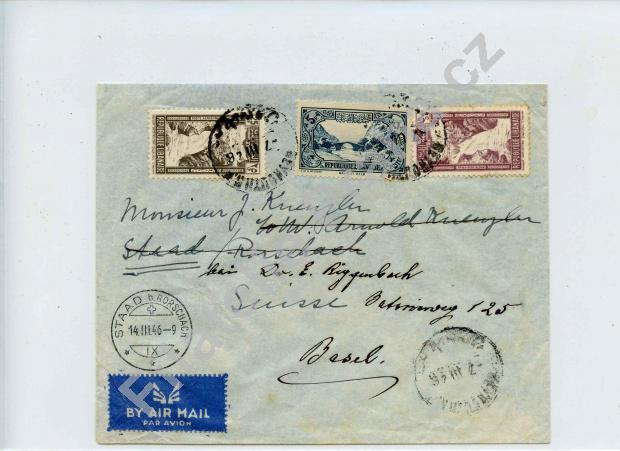 REPUBLIQUE LIBANAISE
5
REPUBLIQUE LIBANAISE
REPUBLIQUE LIBANAISE
BEYROUTH R.P.
7 III 46
Monsieur J. Kuenzler
c/o Mr. Arnold Kuenzler
Staad / Rorschach
bei Dr. E. Riggenbach
Suisse
125
Basel.
STAAD b. RORSCHACH
14.III.46-9
IX
7 III 46
BY AIR MAIL
PAR AVION
cz